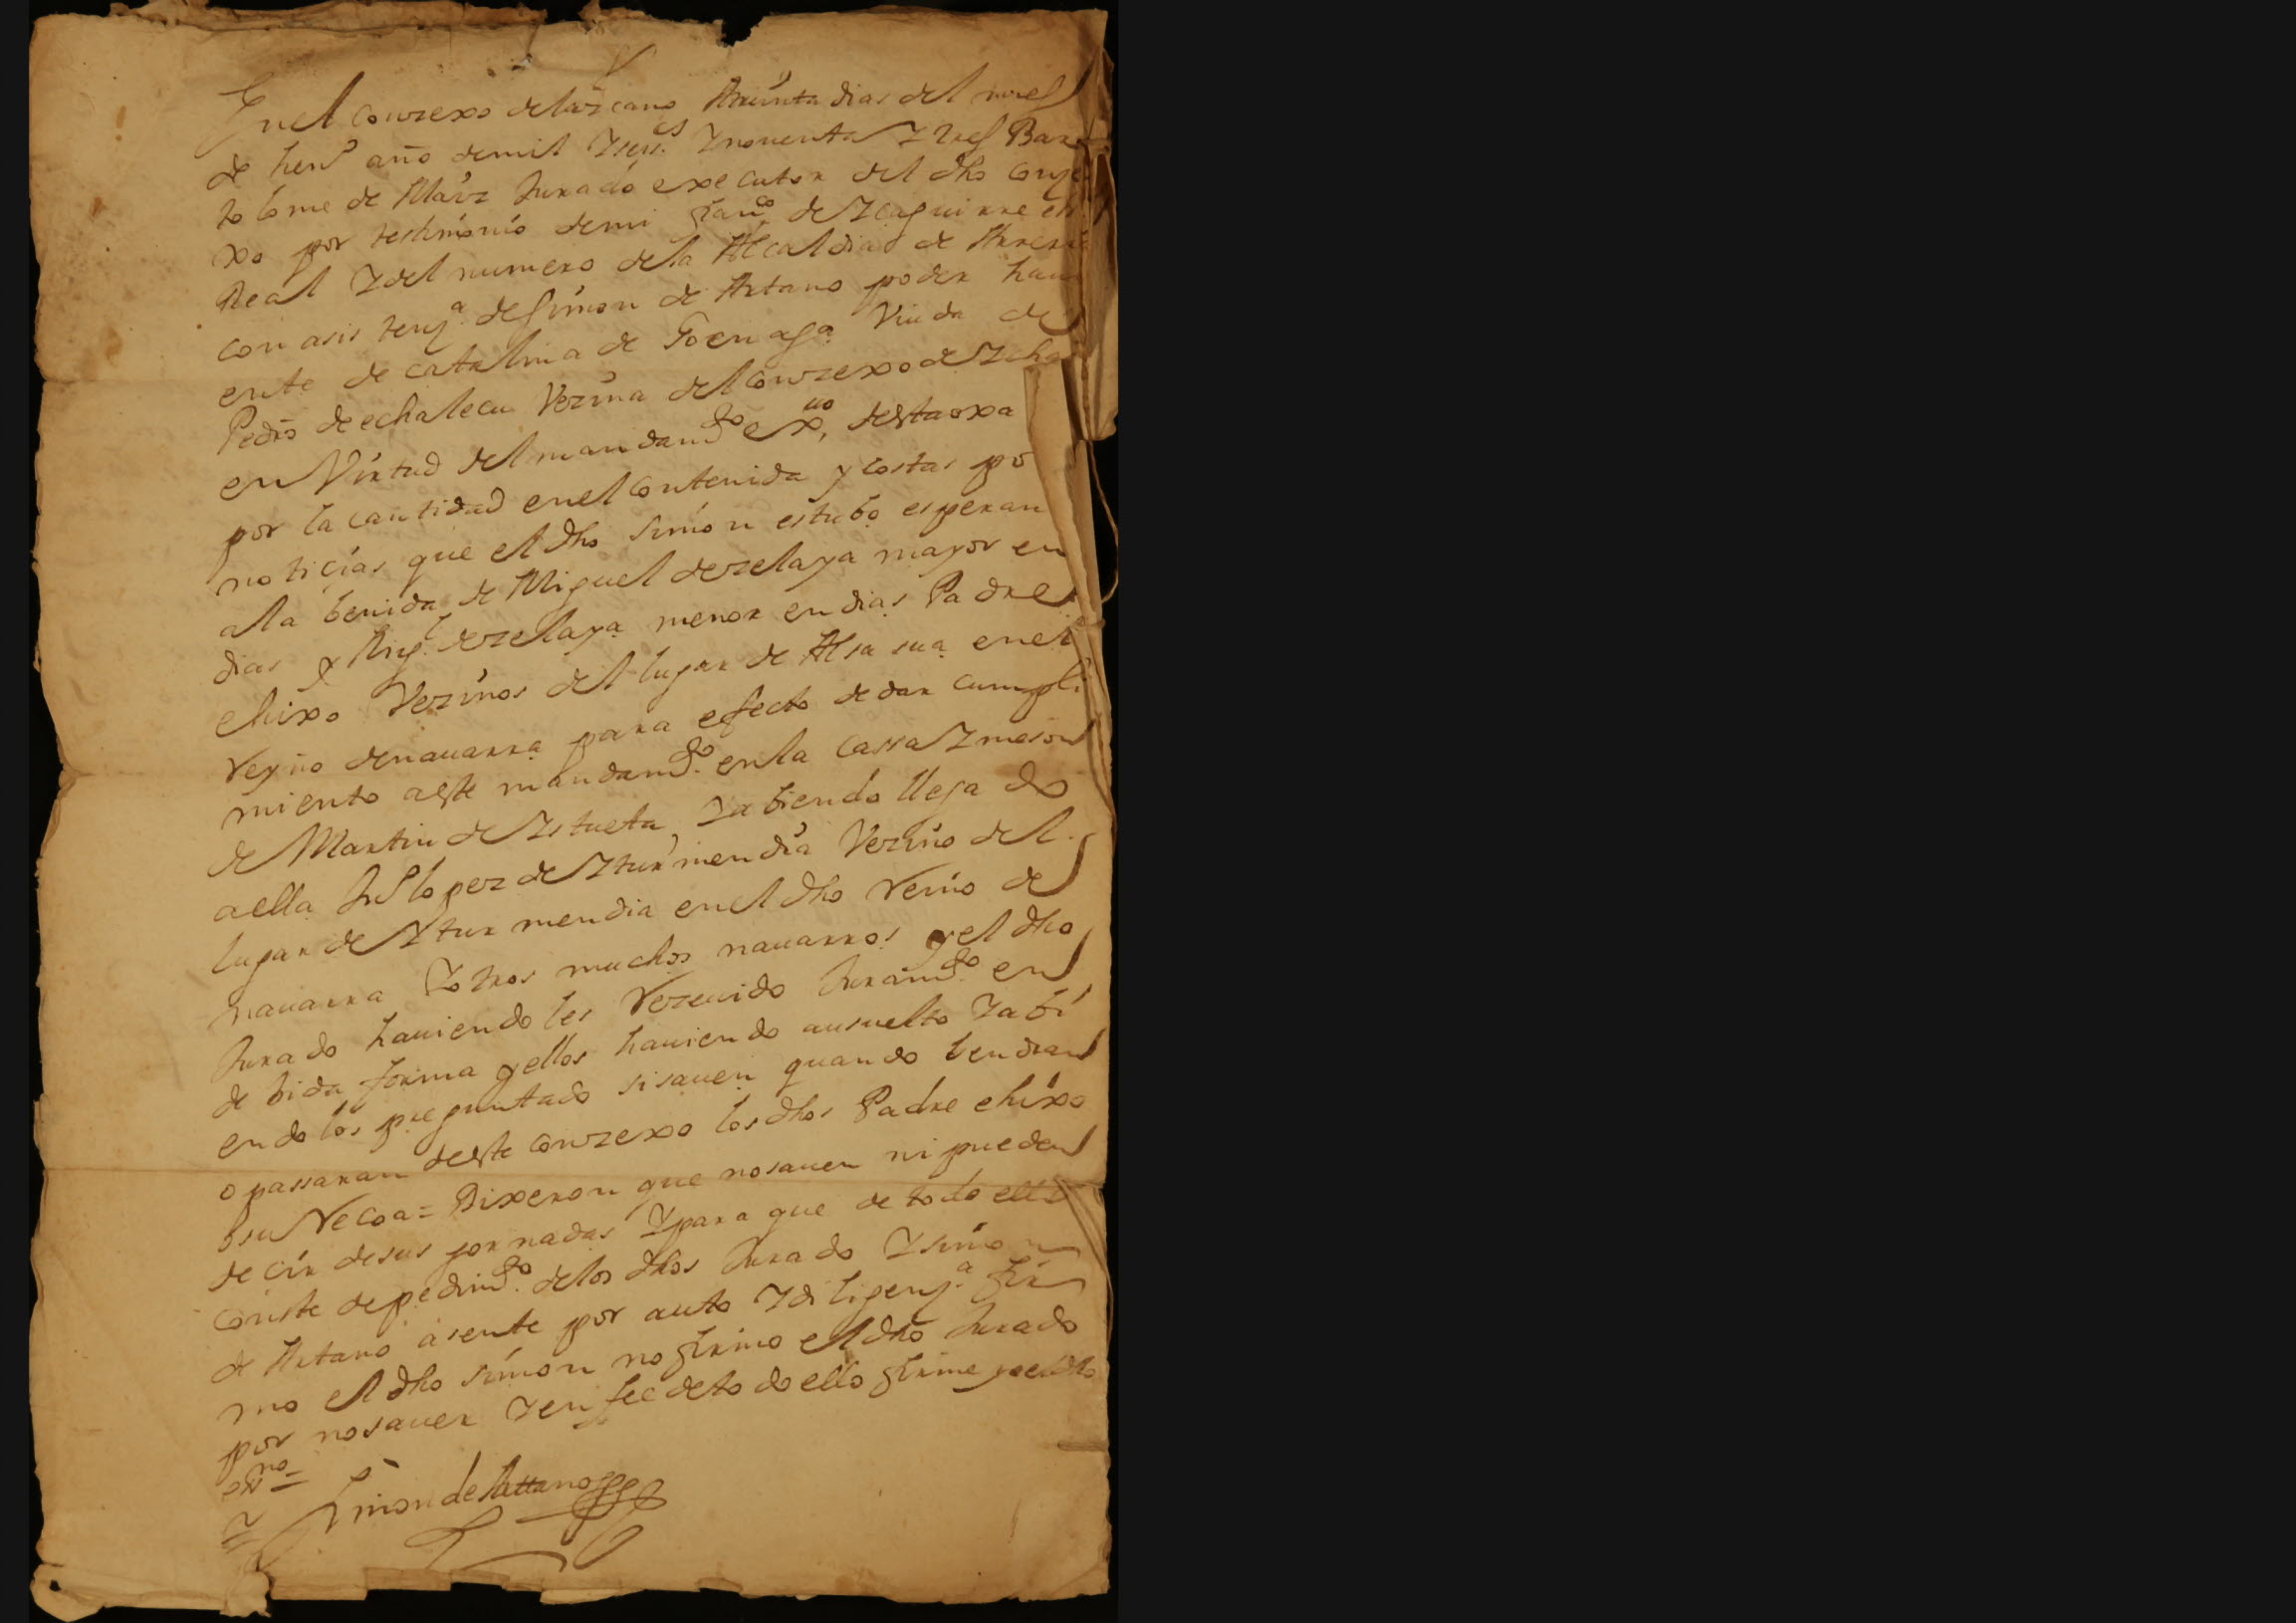 En el conzexo de lazcano A treinta dias del mes
de hen.º año de mil y seis.cs y noventa y tres Bar
tolome de Maiz Jurado executor del dho conze
xo por testimonio de mi fran.co de Yzaguirre es
Real y del numero de la Alcaldia de Areria
con asistenz.a de simon de Artano poder haui
ente de catalina de Goenaga Viuda de
Pedro de echalecu Vezina del conzexo de Ycha
en Virtud del mandam.to ex.uo desta oxa
por la cantidad en el contenida y costas por
noticias que el dho simon estubo esperan
a la benida de Miguel de zelaya mayor en
dias y Mig.l de zelaya menor en dias Padre
e hixo Vezinos del lugar de Alsasua en el
Reyno de nauarra para efecto de dar cumpli
miento a este mandam.to en la cassa y meson
de Martin de Ystueta, y abiendo llegado
a ella Ju.º lopez de Yturmendia Vezino del
lugar de Yturmendia en el dho Reino de
nauarra y otros muchos nauarros y el dho
Jurado hauiendoles Rezeuido Juram.to en
debida forma y ellos hauiendo ausuelto y abi
endolos preguntado si sauen quando bendran
o passaran deste conzexo los dhos Padre e hixo
o su Recoa = Dixeron que no sauen ni pueden
decir de sus jornadas y para que de todo ello
conste de pedim.to de los dhos Jurado y simon
de Artano asente por auto y diligenz.a fir
mo el dho simon no firmo el dho Jurado
por no sauer y en fee de todo ello firme yo el dho
ess.no =
Simon de Arttano